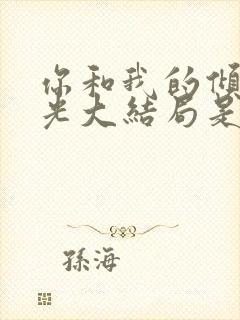 你和我的傾
光大結局是
孫海